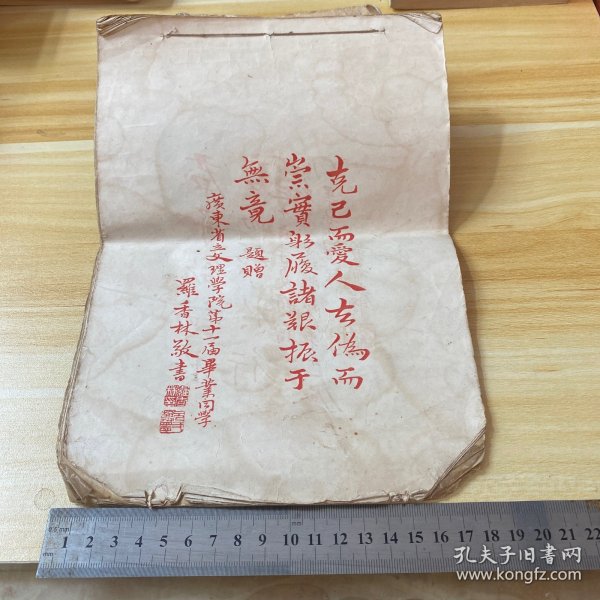 克己而愛人去偽而
崇實躬履諸艱振于
無竟
題贈
廣東省立文理學院第十一届畢業同學
羅香林敬書
0.5mm
10mm
mm
1 2 3 4 5 6 7 8 9 10 11 12 13 14 15 16 17 18 19 20 21 22
孔夫子旧书网
www.kongfz.com